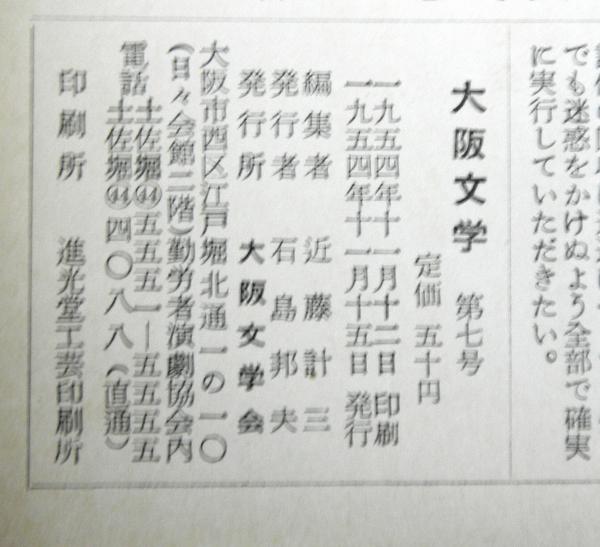 でも迷惑をかけぬよう全部で確実
に実行していただきたい。
大阪文学 第七号
定価 五十円
一九五四年十一月十二日 印刷
一九五四年十一月十五日 発行
編集者 近藤計三
発行者 石島邦夫
発行所 大阪文学会
大阪市西区江戸堀北通一の一〇
(日々会館二階)勤労者演劇協会内
電話 土佐堀㊹五五五一―五五五五
土佐堀㊹四〇八八(直通)
印刷所 進光堂工芸印刷所